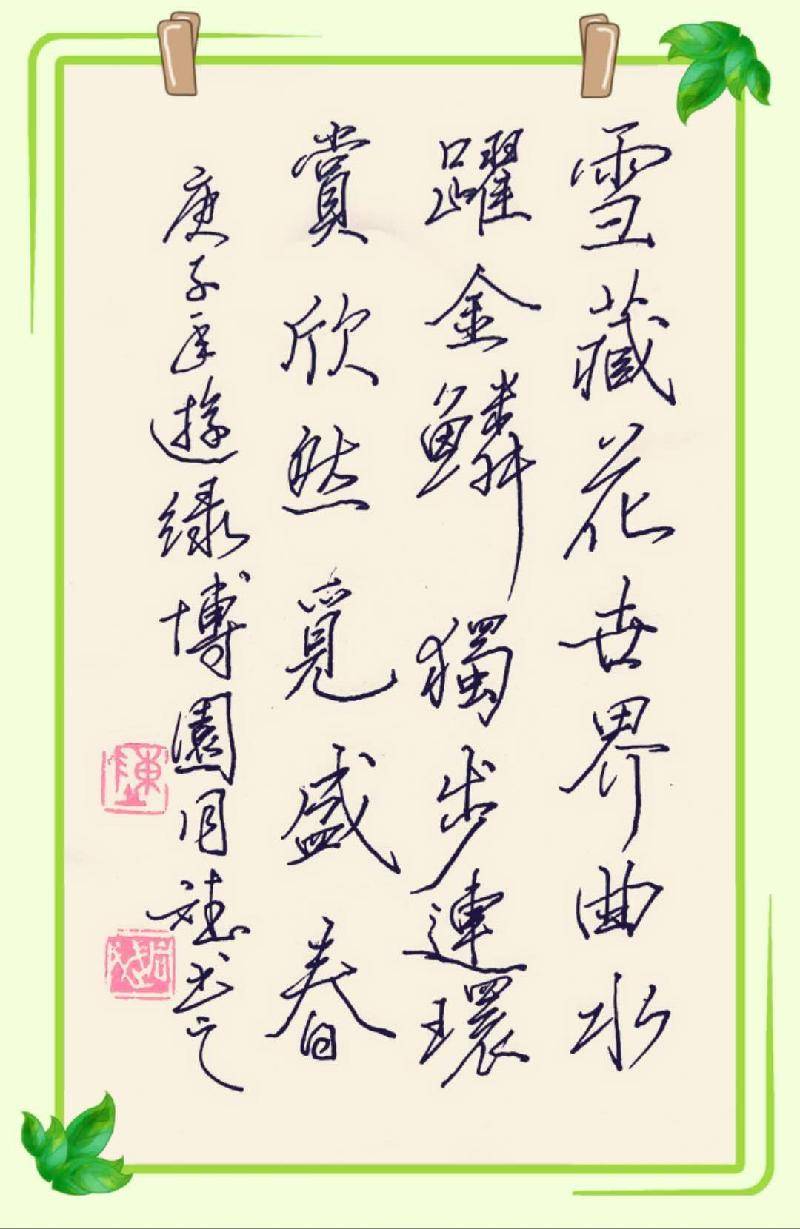 雪藏花世界曲水
躍金鱗獨步連環
賞欣然覓盛春
庚子年遊绿博園同斌书
陳